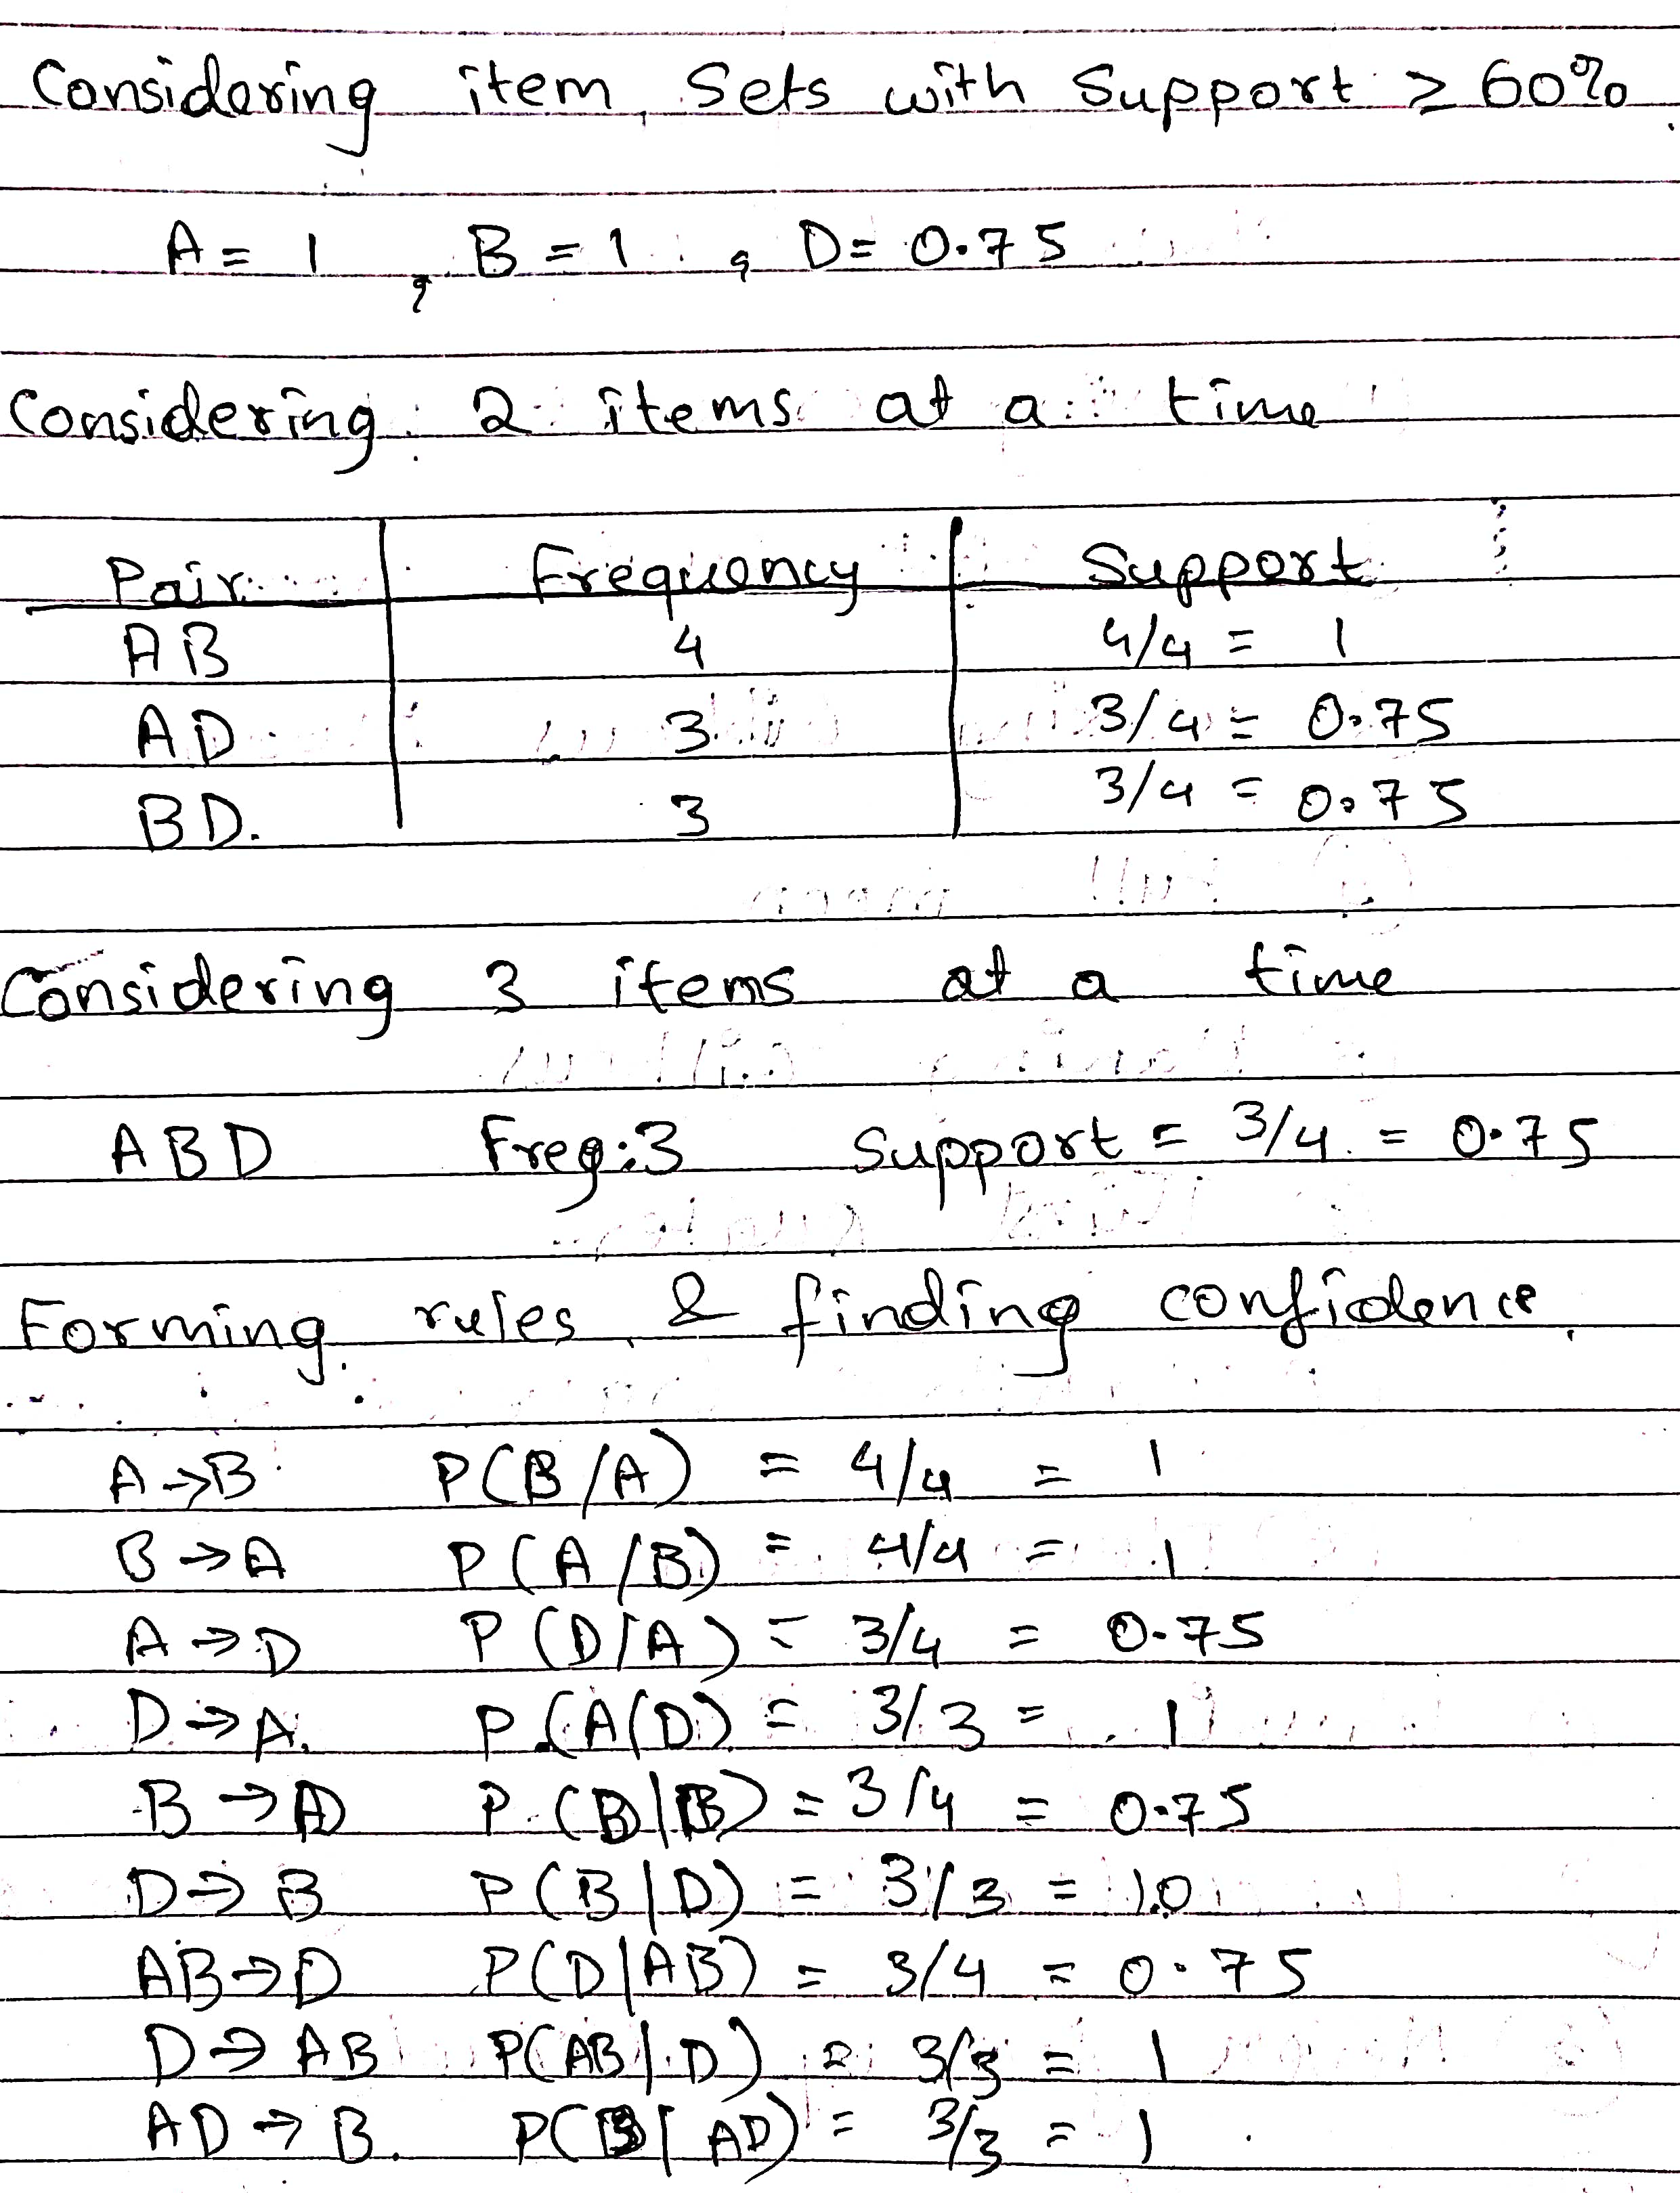 Considering item sets with Support ≥ 60%
A = 1 , B = 1 , D = 0.75
Considering 2 items at a time
Pair Frequency Support
AB 4 4/4 = 1
AD 3 3/4 = 0.75
BD. 3 3/4 = 0.75
Considering 3 items at a time
ABD Freq:3 Support = 3/4 = 0.75
Forming rules & finding confidence.
A → B P(B/A) = 4/4 = 1
B → A P(A/B) = 4/4 = 1
A → D P(D/A) = 3/4 = 0.75
D → A. P(A/D) = 3/3 = 1
B → D P(D|B) = 3/4 = 0.75
D → B P(B|D) = 3/3 = 1.0
AB → D P(D|AB) = 3/4 = 0.75
D → AB P(AB|D) = 3/3 = 1
AD → B. P(B|AD) = 3/3 = 1